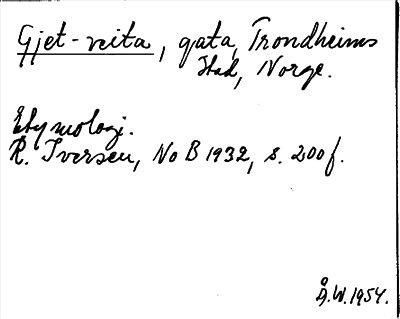 Gjet-veita, gata, Trondheims
stad, Norge.
Etymologi.
R. Iversen, No B 1932, s. 200 f.
Å.W. 1954.